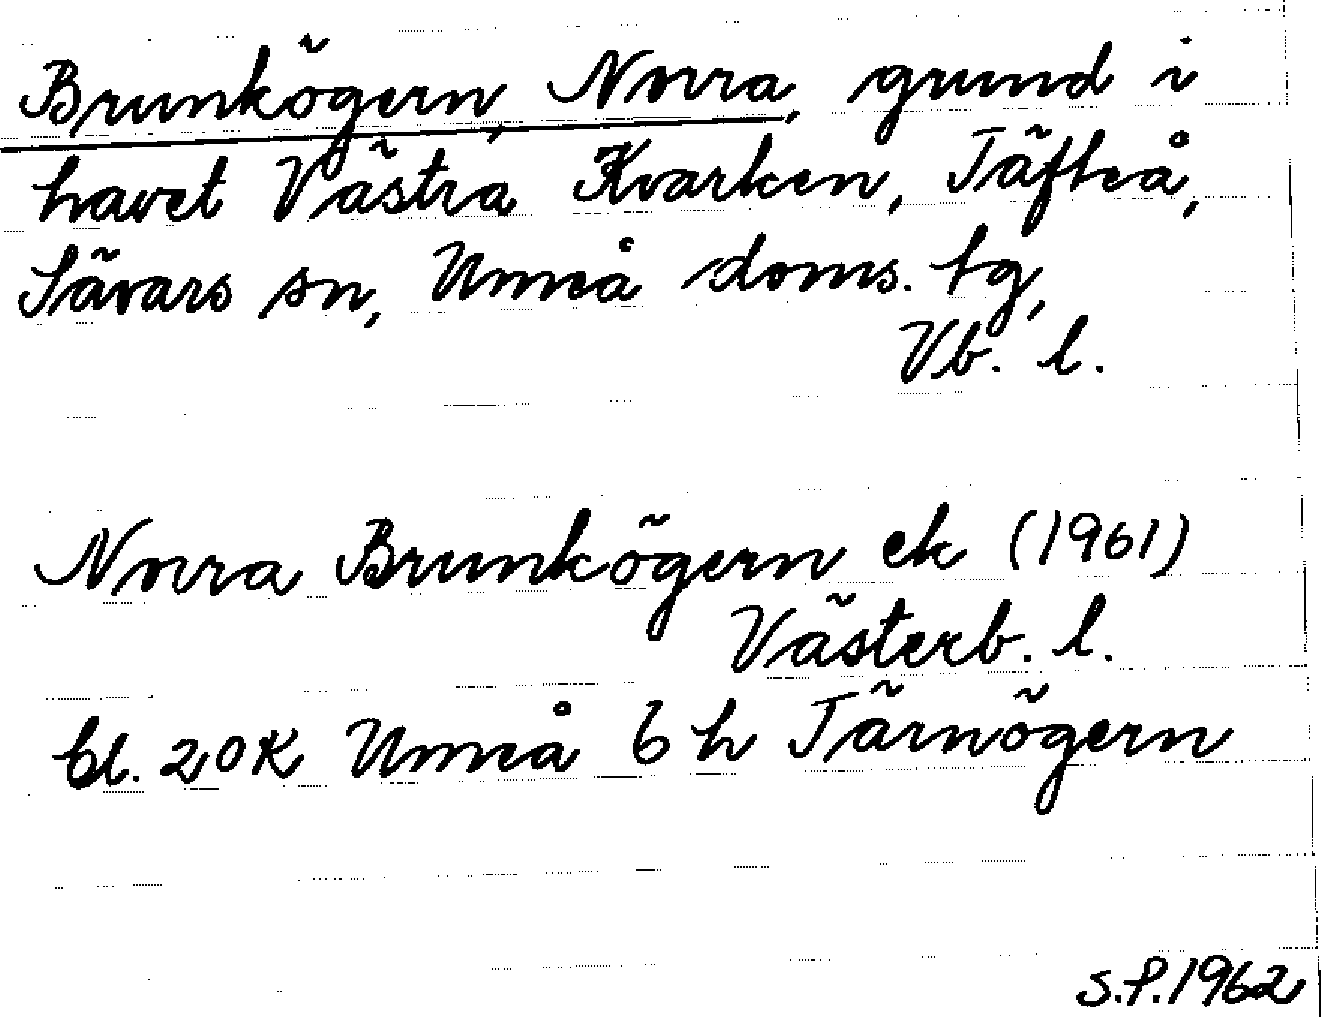 Brunkögern, Norra, grund i
havet Västra Kvarken, Täfteå,
Sävars sn, Umeå doms. tg,
Vb. l.
Norra Brunkögern ek (1961)
Västerb. l.
bl. 20K Umeå 6 h Tärnögern
S.P. 1962